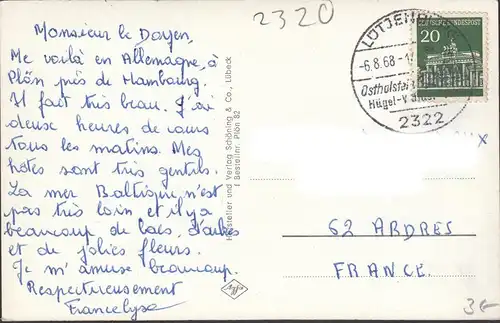 2320
Monsieur le Doyen,
Me voilà en Allemagne, à
Plön près de Hambourg.
Il fait très beau. J'ai
deux heures de cours
tous les matins. Mes
hôtes sont très gentils.
La mer Baltique n'est
pas très loin et il y a
beaucoup de lacs, d'arbres
et de jolies fleurs.
Je m'amuse beaucoup.
Respectueusement
Francelyse
Hersteller und Verlag Schöning & Co., Lübeck
Bestellnr. Plön 82
Agfa
LÜTJENBURG
-6.8.68-1
Ostholstei
Hügel-
2322
DEUTSCHE BUNDESPOST
20
x
62 ARDRES
FRANCE.
3€